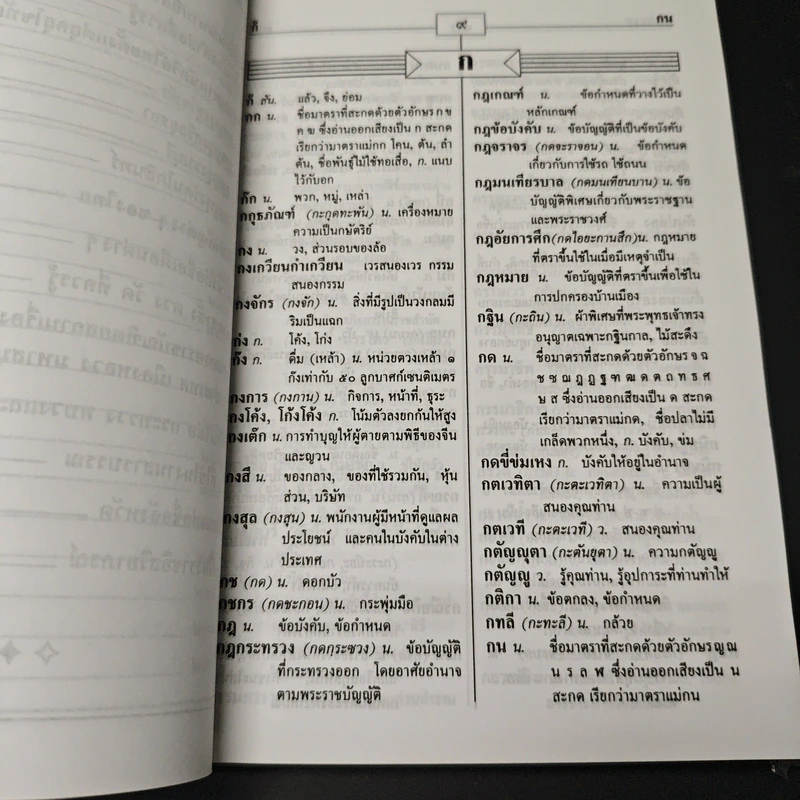 ก็
๙
กน
ก
ก็ สัน. แล้ว, จึง, ย่อม
กก น. ชื่อมาตราที่สะกดด้วยตัวอักษร ก ข
ค ฆ ซึ่งอ่านออกเสียงเป็น ก สะกด
เรียกว่ามาตราแม่กก โคน, ต้น, ลำ
ต้น, ชื่อพันธุ์ไม้ใช้ทอเสื่อ, ก. แนบ
ไว้กับอก
ก๊ก น. พวก, หมู่, เหล่า
กกุธภัณฑ์ (กะกุดทะพัน) น. เครื่องหมาย
ความเป็นกษัตริย์
กง น. วง, ส่วนรอบของล้อ
กงเกวียนกำเกวียน เวรสนองเวร กรรม
สนองกรรม
กงจักร (กงจัก) น. สิ่งที่มีรูปเป็นวงกลมมี
ริมเป็นแฉก
ก่ง ก. โค้ง, โก่ง
ก๊ง ก. ดื่ม (เหล้า) น. หน่วยตวงเหล้า ๑
ก๊งเท่ากับ ๕๐ ลูกบาศก์เซนติเมตร
กงการ (กงกาน) น. กิจการ, หน้าที่, ธุระ
กงโค้ง, โก้งโค้ง ก. โน้มตัวลงยกก้นให้สูง
กงเต๊ก น. การทำบุญให้ผู้ตายตามพิธีของจีน
และญวน
กงสี น. ของกลาง, ของที่ใช้รวมกัน, หุ้น
ส่วน, บริษัท
กงสุล (กงสูน) น. พนักงานผู้มีหน้าที่ดูแลผล
ประโยชน์ และคนในบังคับในต่าง
ประเทศ
กช (กด) น. ดอกบัว
กชกร (กดชะกอน) น. กระพุ่มมือ
กฎ น. ข้อบังคับ, ข้อกำหนด
กฎกระทรวง (กดกฺระซวง) น. ข้อบัญญัติ
ที่กระทรวงออก โดยอาศัยอำนาจ
ตามพระราชบัญญัติ
กฎเกณฑ์ น. ข้อกำหนดที่วางไว้เป็น
หลักเกณฑ์
กฎข้อบังคับ น. ข้อบัญญัติที่เป็นข้อบังคับ
กฎจราจร (กดจะราจอน) น. ข้อกำหนด
เกี่ยวกับการใช้รถ ใช้ถนน
กฎมนเทียรบาล (กดมนเทียนบาน) น. ข้อ
บัญญัติพิเศษเกี่ยวกับพระราชฐาน
และพระราชวงศ์
กฎอัยการศึก (กดไอยะกานสึก) น. กฎหมาย
ที่ตราขึ้นใช้ในเมื่อมีเหตุจำเป็น
กฎหมาย น. ข้อบัญญัติที่ตราขึ้นเพื่อใช้ใน
การปกครองบ้านเมือง
กฐิน (กะถิน) น. ผ้าพิเศษที่พระพุทธเจ้าทรง
อนุญาตเฉพาะกฐินกาล, ไม้สะดึง
กด น. ชื่อมาตราที่สะกดด้วยตัวอักษร จ ฉ
ช ซ ฌ ฎ ฏ ฐ ฑ ฒ ด ต ถ ท ธ ศ
ษ ส ซึ่งอ่านออกเสียงเป็น ด สะกด
เรียกว่ามาตราแม่กด, ชื่อปลาไม่มี
เกล็ดพวกหนึ่ง, ก. บังคับ, ข่ม
กดขี่ข่มเหง ก. บังคับให้อยู่ในอำนาจ
กตเวทิตา (กะตะเวทิตา) น. ความเป็นผู้
สนองคุณท่าน
กตเวที (กะตะเวที) ว. สนองคุณท่าน
กตัญญุตา (กะตันยุตา) น. ความกตัญญู
กตัญญู ว. รู้คุณท่าน, รู้อุปการะที่ท่านทำให้
กติกา น. ข้อตกลง, ข้อกำหนด
กทลี (กะทะลี) น. กล้วย
กน น. ชื่อมาตราที่สะกดด้วยตัวอักษร ญ ณ
น ร ล ฬ ซึ่งอ่านออกเสียงเป็น น
สะกด เรียกว่ามาตราแม่กน